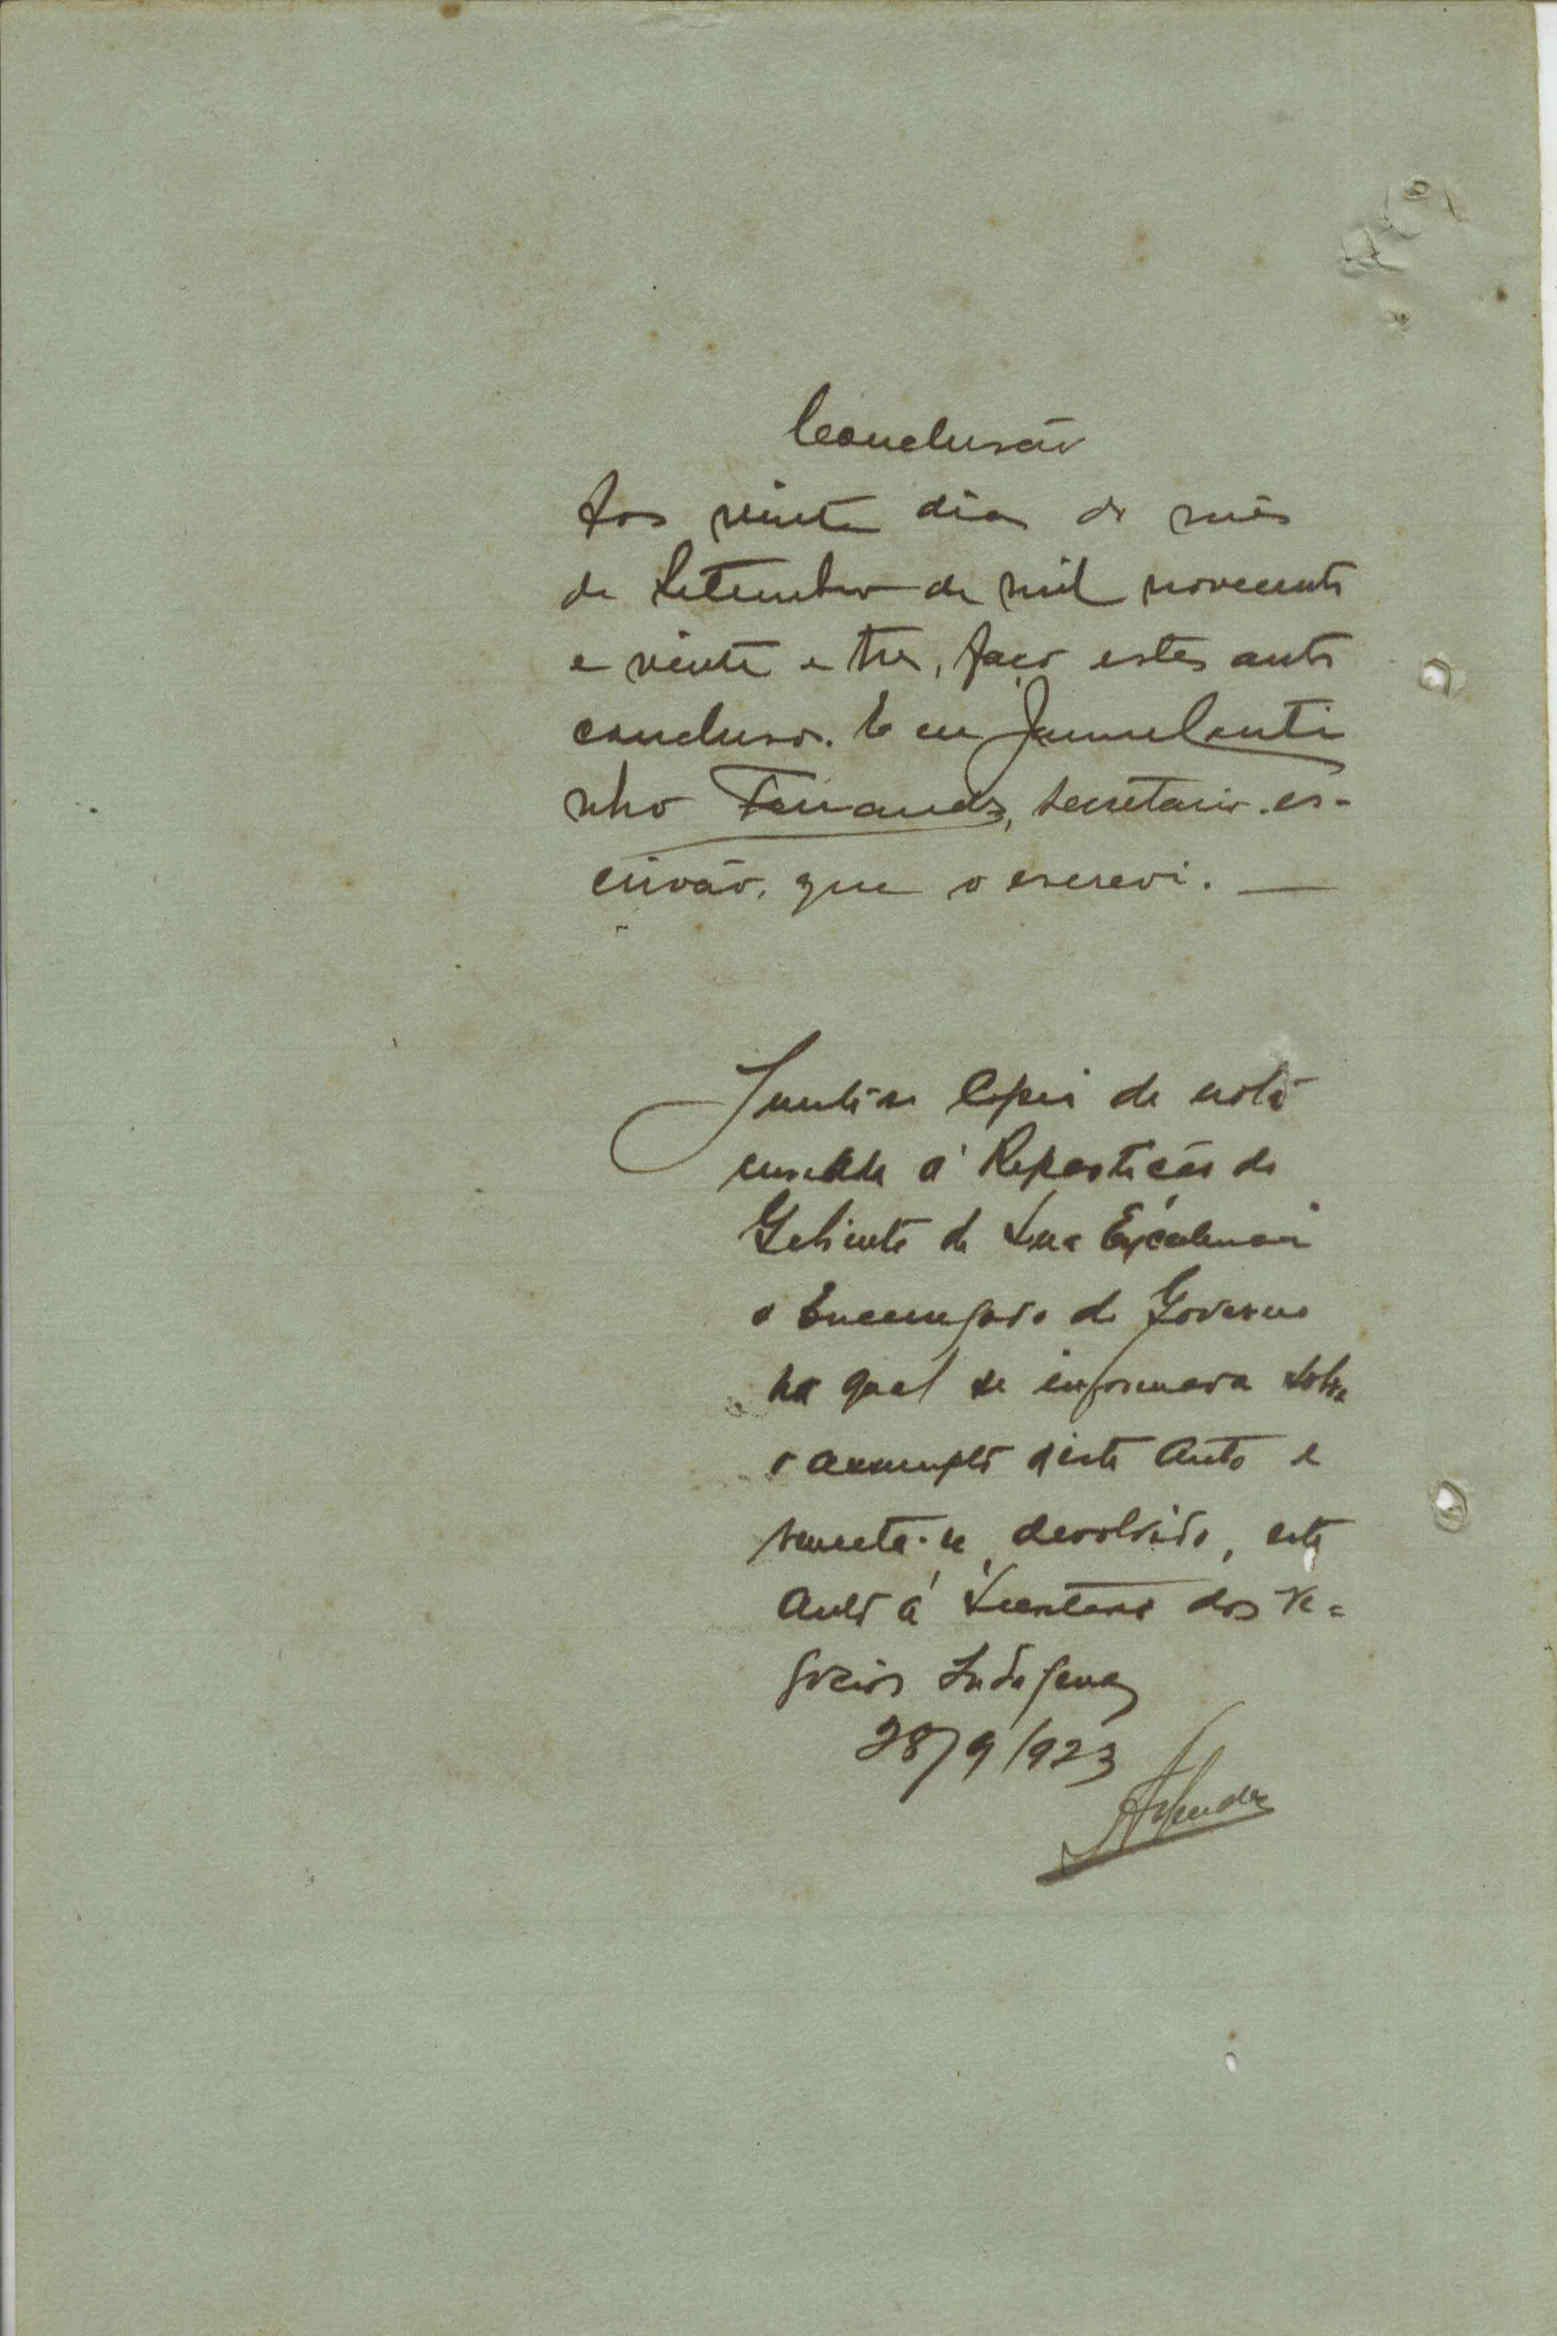 Conclusão
Aos vinte dias do mês
de Setembro de mil novecentos
e vinte e tres, faço estes autos
conclusos. E eu
nho Fernandes, secretario-es-
crivão, que o escrevi. —
Junte-se copia da nota
enviada á Repartição do
Gabinete de Sua Excelencia
o Encarregado do Governo
na qual se informava sobre
o assumpto d'este Auto e
remeta-se, devolvido, este
Auto á Secretaria dos Ne=
gocios Indigenas
28/9/923